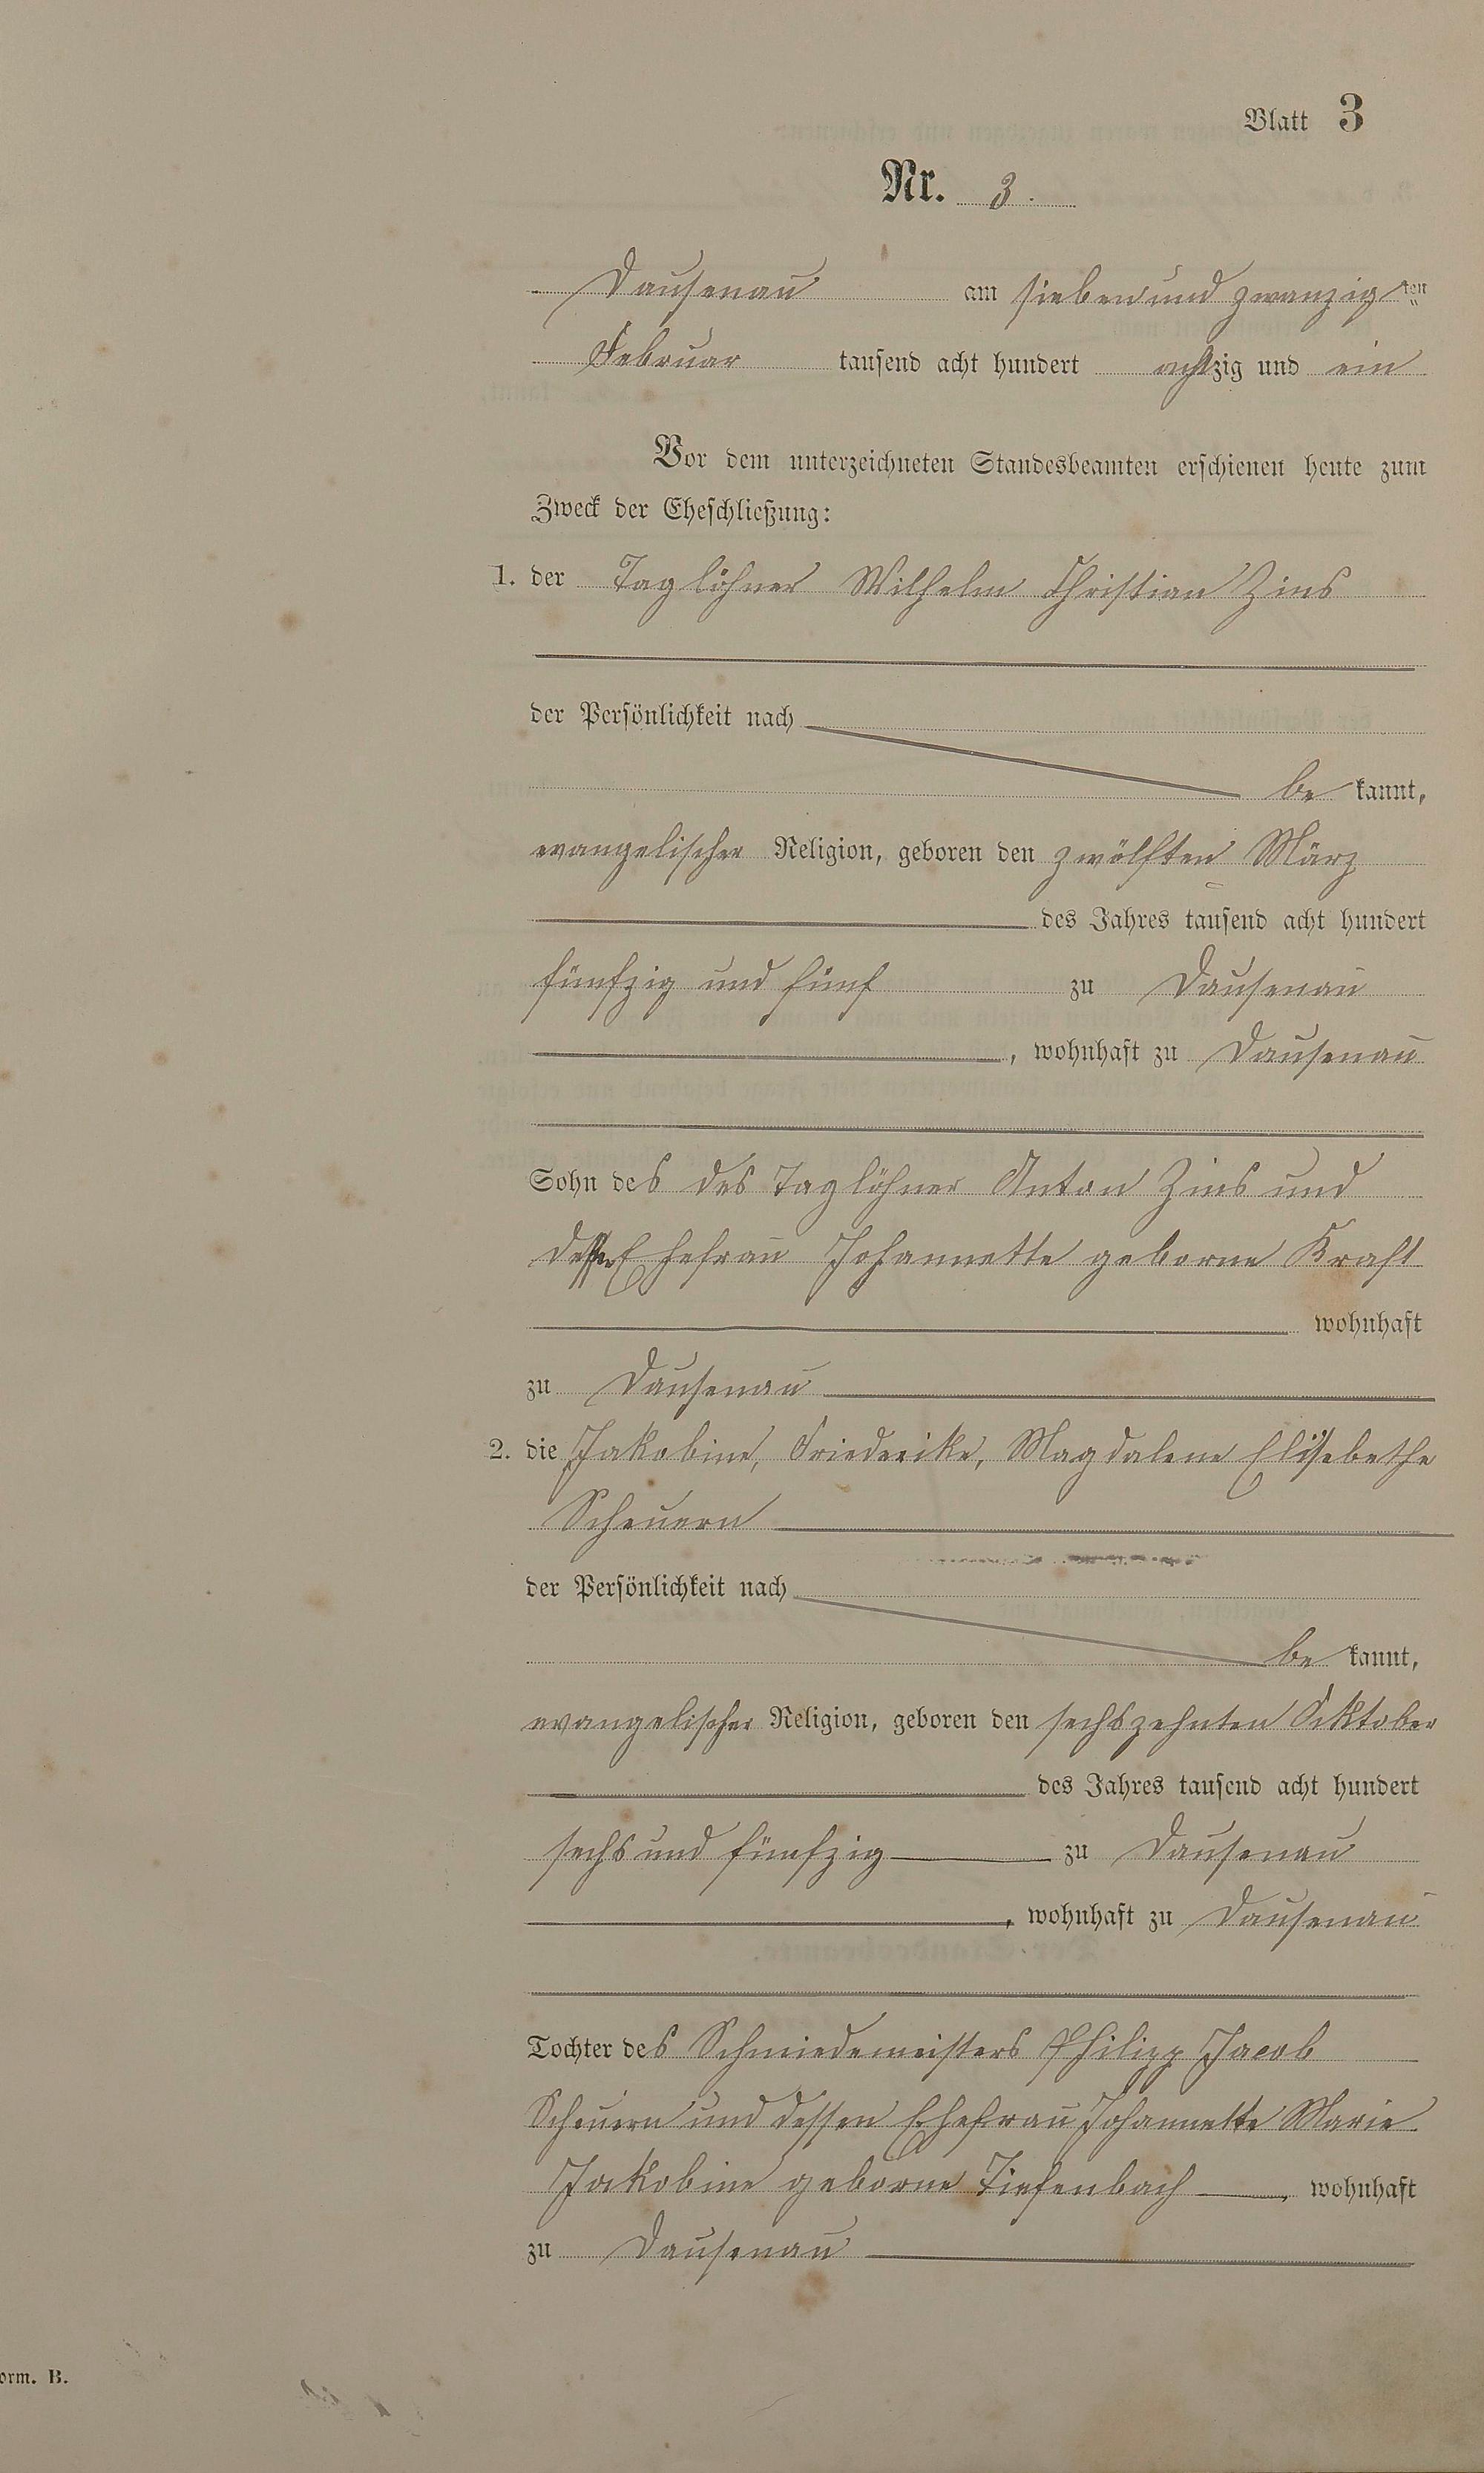 Blatt 3
Nr. 3.
Dausenau am sieben und zwanzig ten
Februar tausend acht hundert achtzig und ein
Vor dem unterzeichneten Standesbeamten erschienen heute zum
Zweck der Eheschließung:
1. der Taglöhner Wilhelm Christian Zins
der Persönlichkeit nach
be kannt,
evangelischer Religion, geboren den zwölften März
des Jahres tausend acht hundert
fünfzig und fünf zu Dausenau
, wohnhaft zu Dausenau
Sohn des des Taglöhner Anton Zins und
dessen Ehefrau Johannette geborne Kraft
wohnhaft
zu Dausenau
2. die Jakobine, Friederike, Magdalene Elisebethe
Scheuern
der Persönlichkeit nach
be kannt,
evangelischer Religion, geboren den sechszehnten Oktober
des Jahres tausend acht hundert
sechs und fünfzig zu Dausenau
, wohnhaft zu Dausenau
Tochter des Schmiedemeisters Philipp Jacob
Scheuern und dessen Ehefrau Johannette Marie
Jakobine geborne Tiefenbach wohnhaft
zu Dausenau
orm. B.